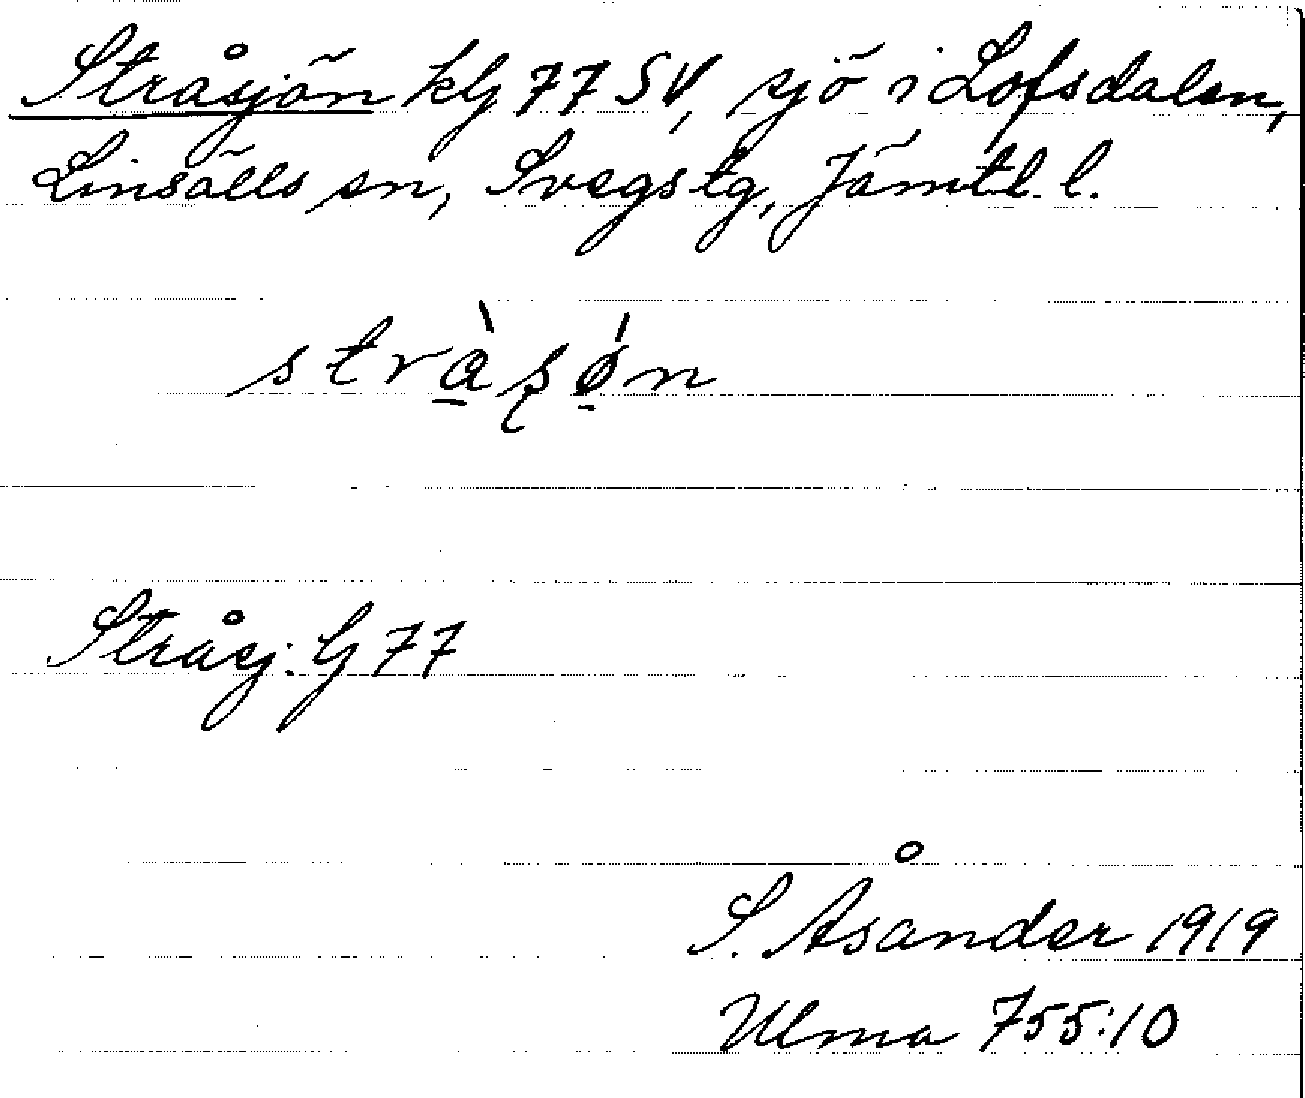 Stråsjön kG 77 SV, sjö i Lofsdalen,
Linsälls sn, Svegs tg, Jämtl. l.
Stråsj. G 77
S. Åsander 1919
Ulma 755:10